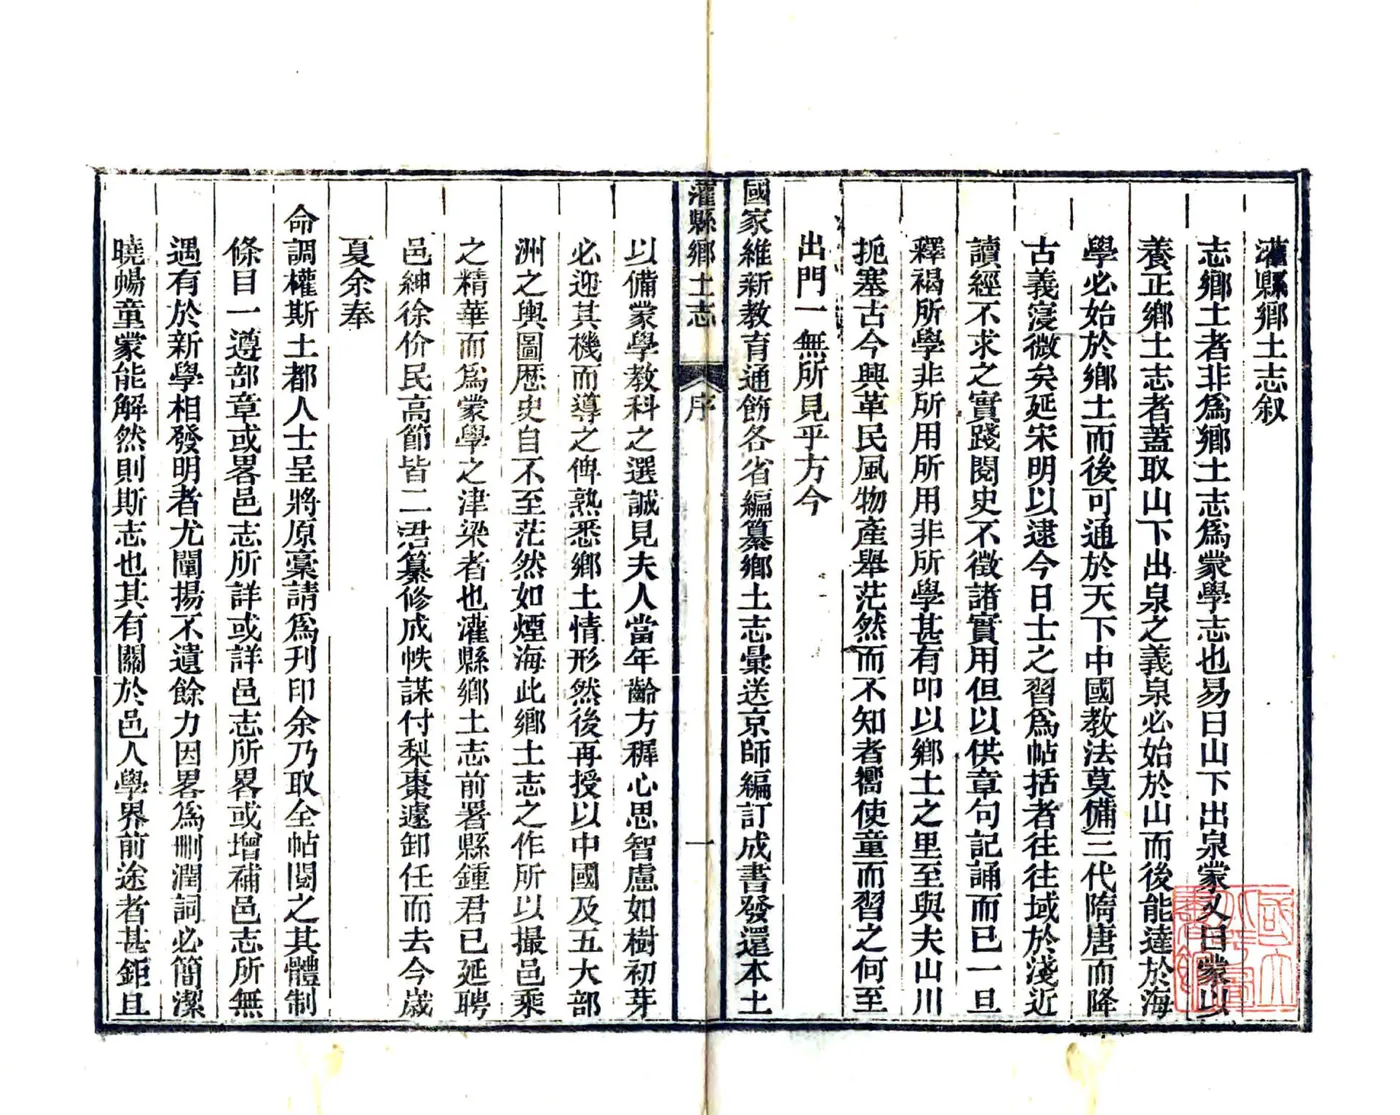 灌縣鄉土志敘
志鄉土者非爲鄉土志爲蒙學志也易曰山下出泉蒙又曰蒙以
養正鄉土志者蓋取山下出泉之義泉必始於山而後能達於海
學必始於鄉土而後可通於天下中國教法莫備三代隋唐而降
古義寖微矣延宋明以逮今日士之習爲帖括者往往域於淺近
讀經不求之實踐閱史不徵諸實用但以供章句記誦而已一旦
釋褐所學非所用所用非所學甚有叩以鄉土之里至與夫山川
扼塞古今興革民風物產舉茫然而不知者嚮使童而習之何至
出門一無所見乎方今
國家維新教育通飭各省編纂鄉土志彙送京師編訂成書發還本土
灌縣鄉土志 序 一
以備蒙學教科之選誠見夫人當年齡方穉心思智慮如樹初芽
必迎其機而導之俾熟悉鄉土情形然後再授以中國及五大部
洲之輿圖歷史自不至茫然如煙海此鄉土志之作所以撮邑乘
之精華而爲蒙學之津梁者也灌縣鄉土志前署縣鍾君已延聘
邑紳徐价民高節皆二君纂修成帙謀付梨棗遽卸任而去今歲
夏余奉
命調權斯土都人士呈將原稾請爲刊印余乃取全帖閱之其體制
條目一遵部章或畧邑志所詳或詳邑志所畧或增補邑志所無
遇有於新學相發明者尤闡揚不遺餘力因畧爲刪潤詞必簡潔
曉暢童蒙能解然則斯志也其有關於邑人學界前途者甚鉅且